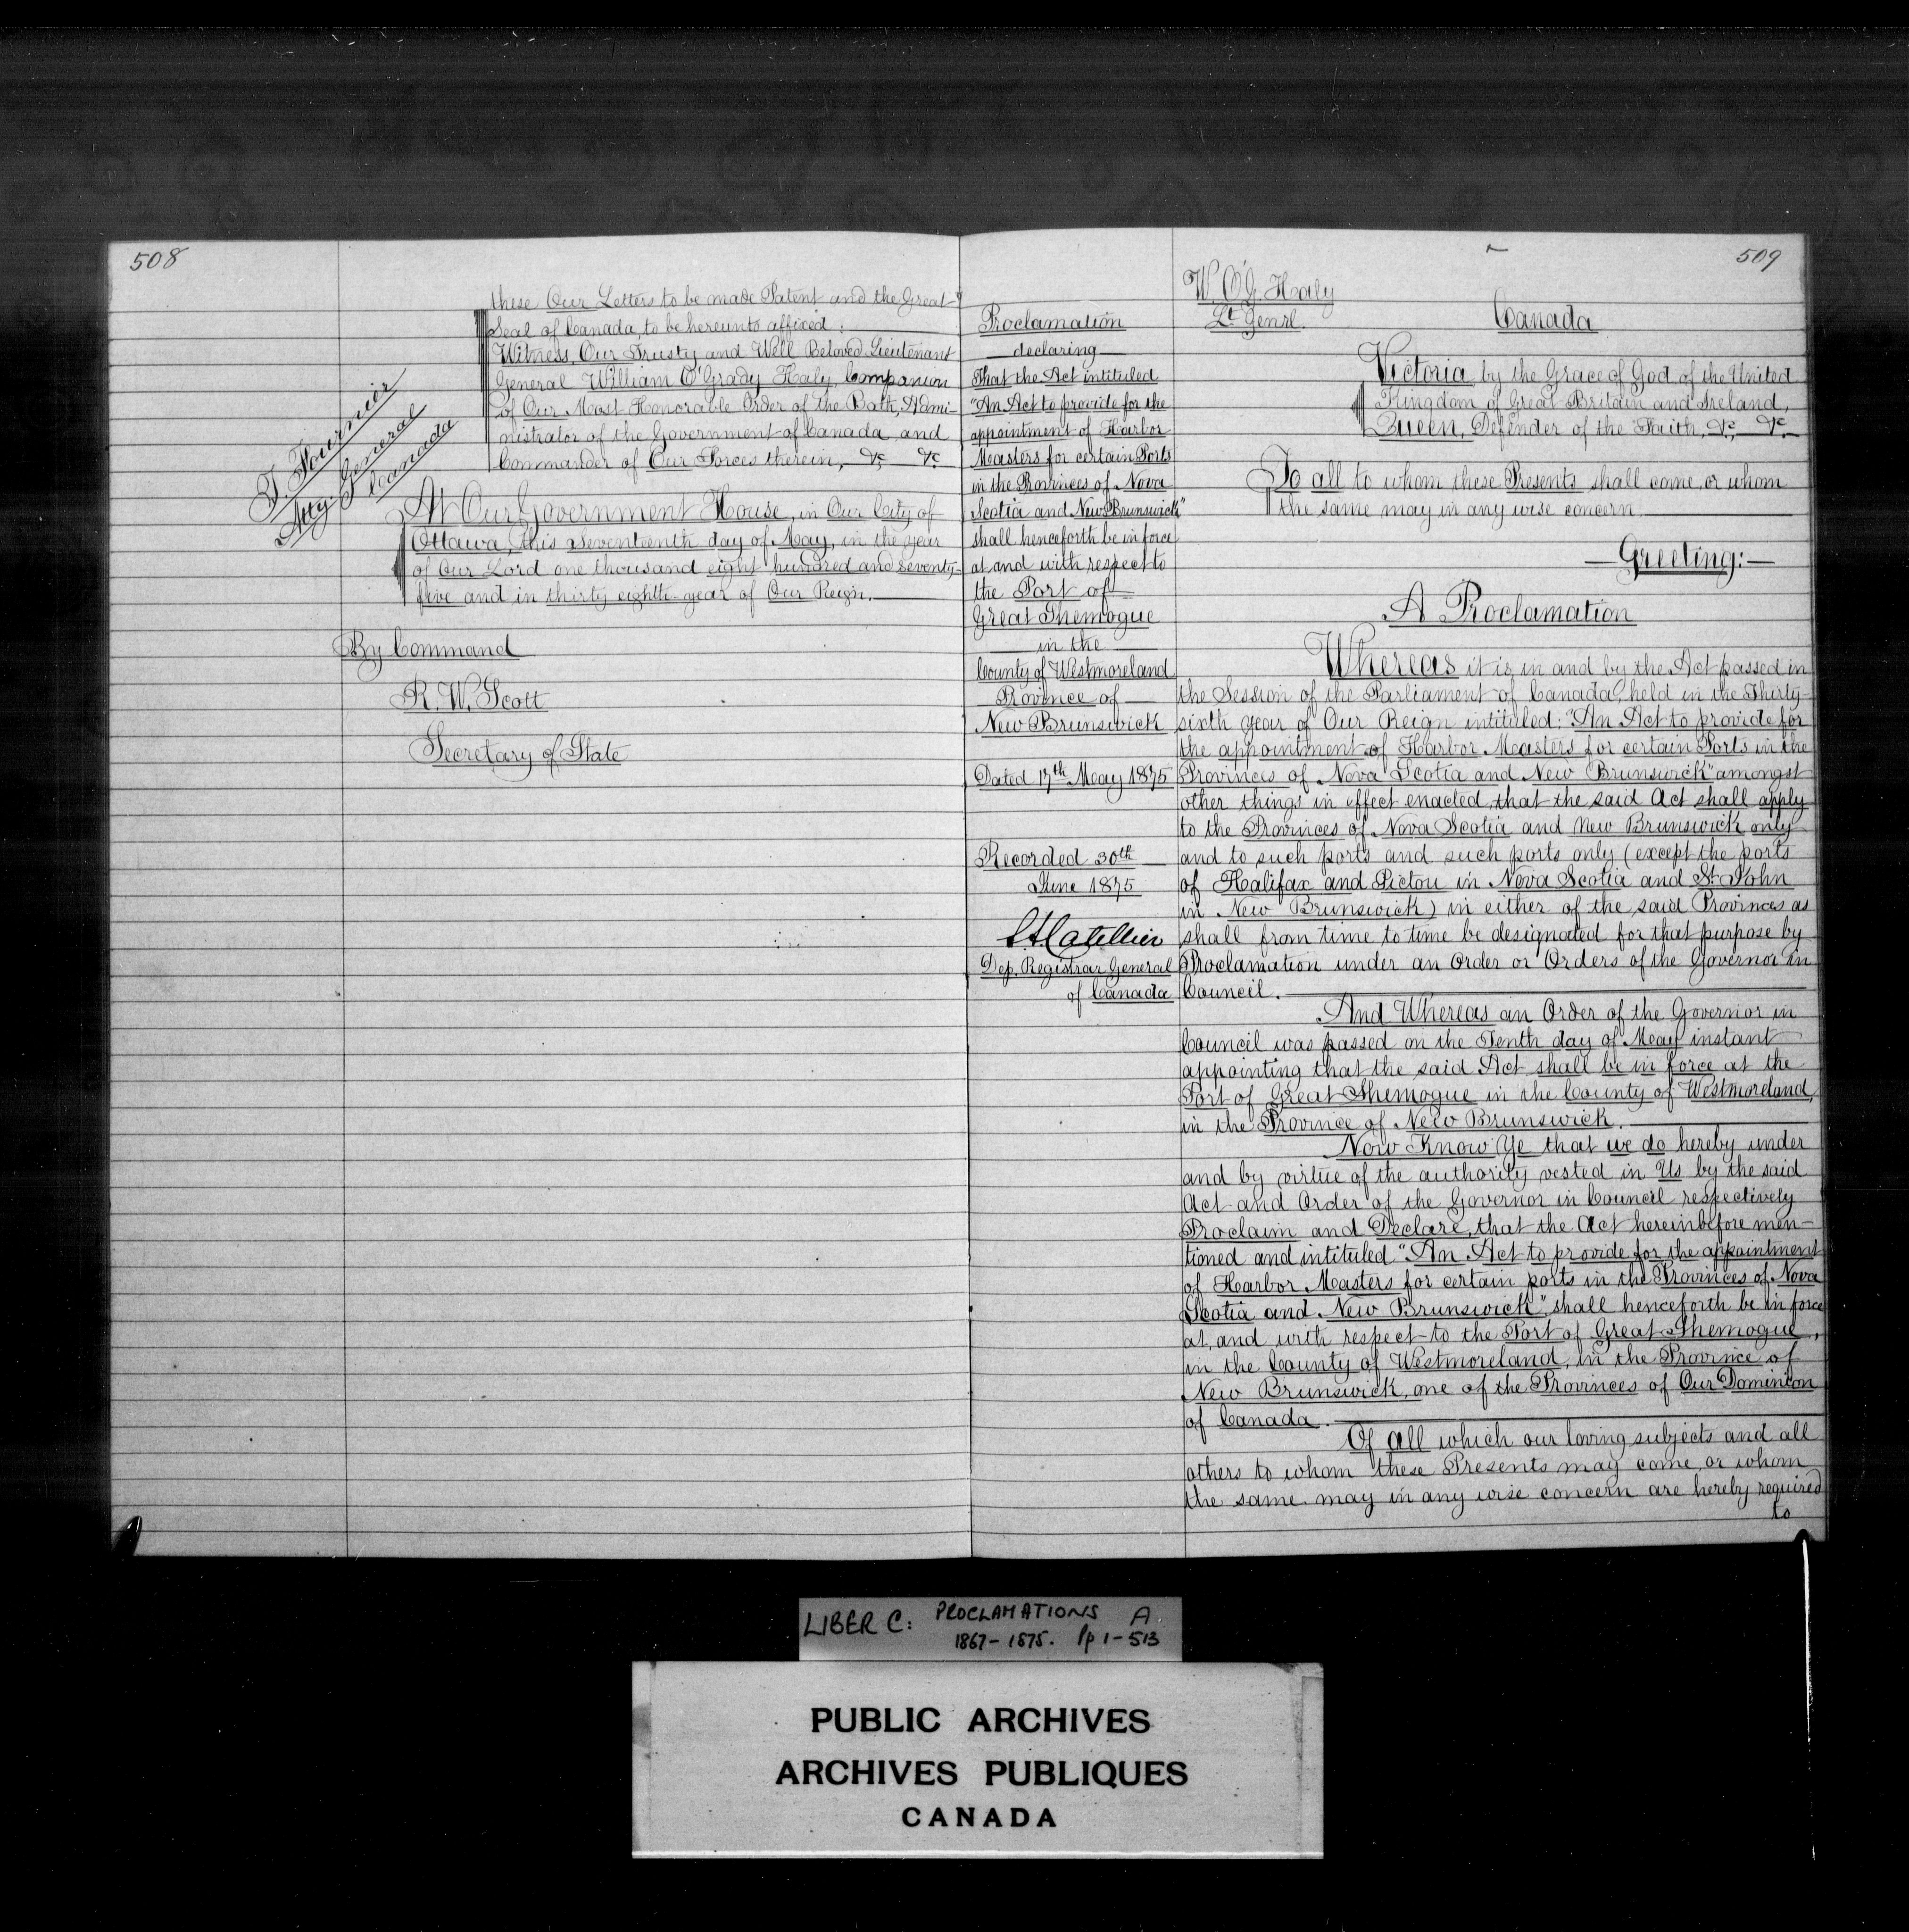 508
these Our Letters to be made Patent and the Great
Seal of Canada, to be hereunto affixed:
Witness, Our Trusty and Well Beloved Lieutenant
General William O'Grady Haly, Companion
of Our Most Honorable Order of the Bath, Admi-
nistrator of the Government of Canada, and
Commander of Our Forces therein, &c &c
T. Fournier
Atty. General
Canada
At Our Government House, in Our City of
Ottawa, this seventeenth day of May, in the year
of Our Lord one thousand eight hundred and seventy-
five and in thirty eighth year of Our Reign.
By Command
R. W. Scott
Secretary of State
Proclamation
declaring
That the Act intituled
"An Act to provide for the
appointment of Harbor
Masters for certain Ports
in the Provinces of Nova
Scotia and New Brunswick"
shall henceforth be in force
at and with respect to
the Port of
Great Shemogue
in the
County of Westmoreland
Province of
New Brunswick
Dated 17th May 1875
Recorded 30th
June 1875
Dep. Registrar General
of Canada
509
W. O'G. Haly
Lt Genrl.
Canada
Victoria, by the Grace of God, of the United
Kingdom of Great Britain and Ireland,
Queen, Defender of the Faith, &c, &c
To all to whom these Presents shall come, or whom
the same may in any wise concern,
Greeting:—
A Proclamation
Whereas it is in and by the Act passed in
the Session of the Parliament of Canada, held in the Thirty-
sixth year of Our Reign intituled: "An Act to provide for
the appointment of Harbor Masters for certain Ports in the
Provinces of Nova Scotia and New Brunswick" amongst
other things in effect enacted, that the said Act shall apply
to the Provinces of Nova Scotia and New Brunswick only
and to such ports and such ports only (except the ports
of Halifax and Pictou in Nova Scotia and St John
in New Brunswick) in either of the said Provinces as
shall from time to time be designated for that purpose by
Proclamation under an Order or Orders of the Governor in
Council.
And Whereas an Order of the Governor in
Council was passed on the Tenth day of May instant
appointing that the said Act shall be in force at the
Port of Great Shemogue in the County of Westmoreland,
in the Province of New Brunswick.
Now Know Ye that we do hereby under
and by virtue of the authority vested in Us by the said
Act and Order of the Governor in Council respectively
Proclaim and Declare, that the Act hereinbefore men-
tioned and intituled "An Act to provide for the appointment
of Harbor Masters for certain ports in the Provinces of Nova
Scotia and New Brunswick", shall henceforth be in force
at, and with respect to the Port of Great Shemogue,
in the County of Westmoreland, in the Province of
New Brunswick, one of the Provinces of Our Dominion
of Canada.
Of all which our loving subjects and all
others to whom these Presents may come, or whom
the same may in any wise concern are hereby required
to
LIBER C: PROCLAMATIONS A
1867-1875. Pp 1-513
PUBLIC ARCHIVES
ARCHIVES PUBLIQUES
CANADA